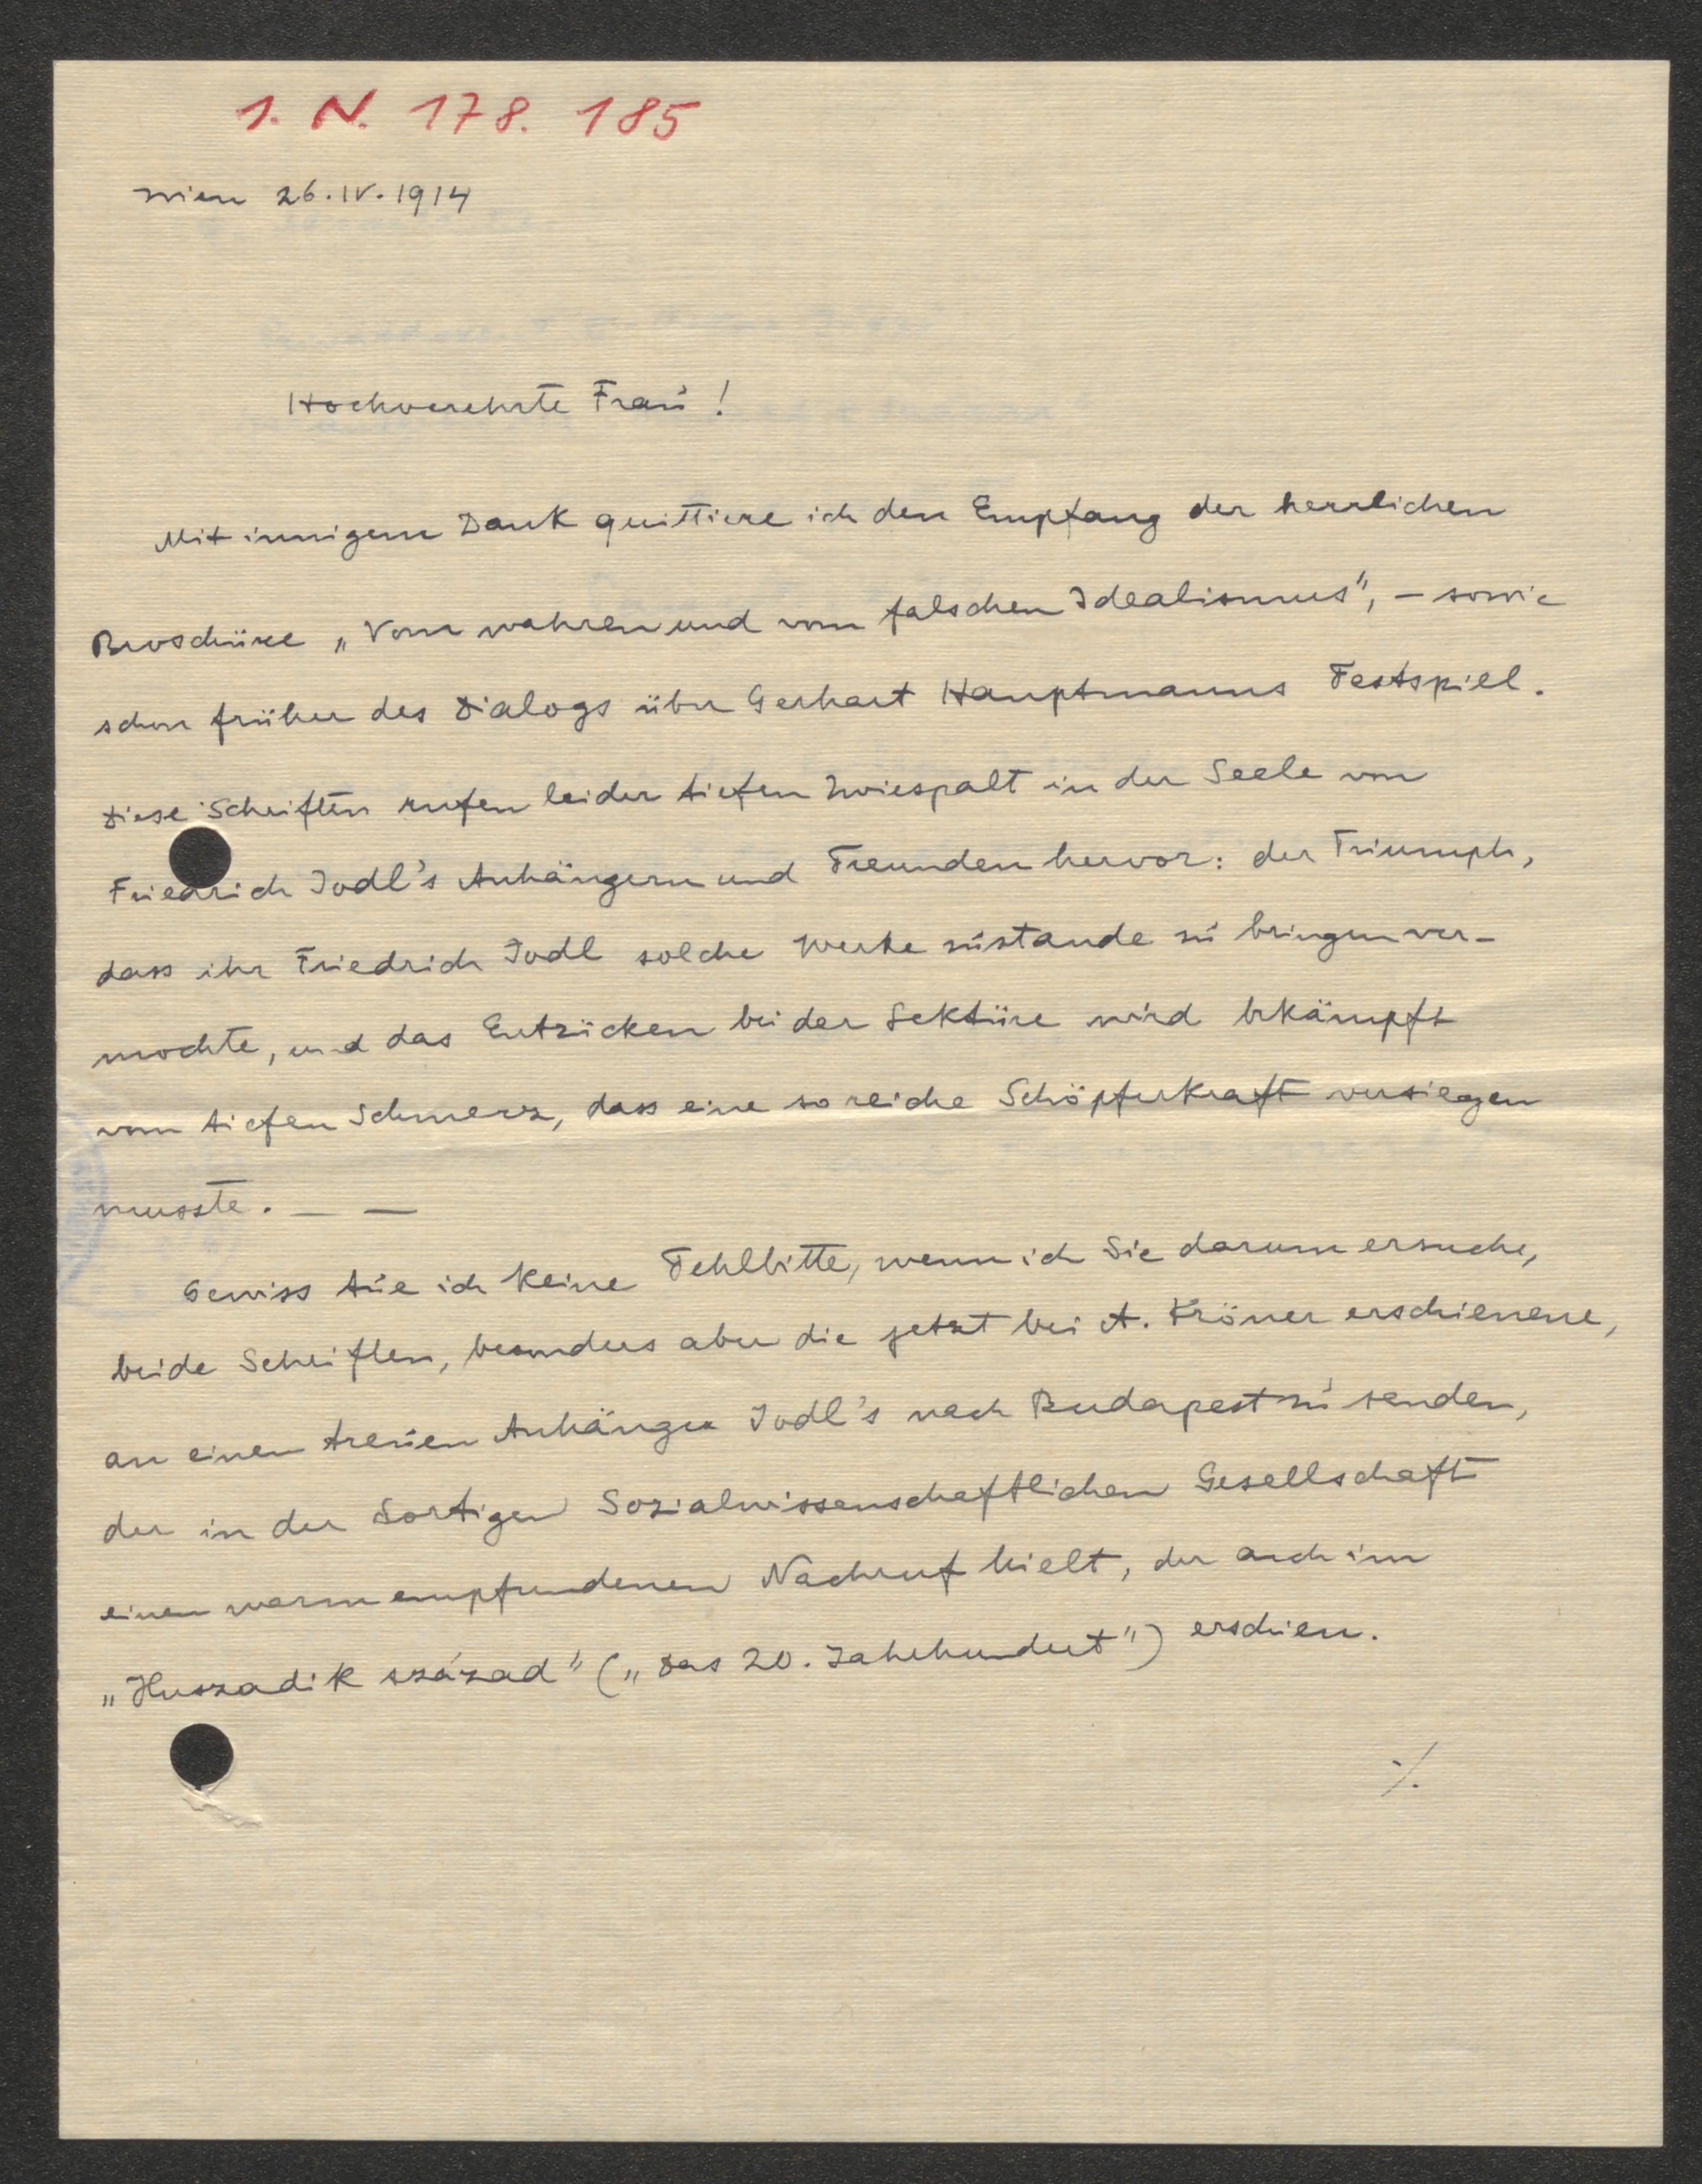 1. N. 178. 185
Wien 26.IV.1914
Hochverehrte Frau!
Mit innigem Dank quittiere ich den Empfang der herrlichen
Broschüre „Vom wahren und vom falschen Idealismus", – sowie
schon früher des Dialogs über Gerhart Hauptmanns Festspiel.
Diese Schriften rufen leider tiefen Zwiespalt in der Seele von
Friedrich Jodl's Anhängern und Freunden hervor: der Triumph,
dass ihr Friedrich Jodl solche Werke zustande zu bringen ver-
mochte, und das Entzücken bei der Lektüre wird bekämpft
vom tiefen Schmerz, dass eine so reiche Schöpferkraft versiegen
musste. – –
Gewiss tue ich keine Fehlbitte, wenn ich Sie darum ersuche,
beide Schriften, besonders aber die jetzt bei A. Kröner erschienene,
an einen treuen Anhänger Jodl's nach Budapest zu senden,
der in der dortigen Sozialwissenschaftlichen Gesellschaft
einen warm empfundenen Nachruf hielt, der auch im
„Huszadik század" („Das 20. Jahrhundert") erschien.
./.